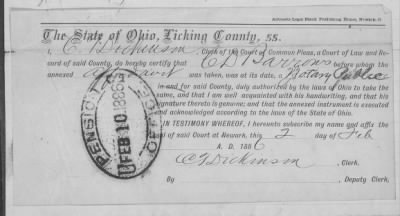 The State of Ohio, Licking County, ss.
I, C. Dickinson, Clerk of the Court of Common Pleas, a Court of Law and Record
of said County, do hereby certify that C D Barrows before whom the
annexed affidavit was taken, was at its date, a Notary Public
in and for said County, duly authorized by the laws of Ohio to take the
same, and that I am well acquainted with his handwriting, and that his
signature thereto is genuine; and that the annexed instrument is executed
and acknowledged according to the laws of the State of Ohio.
IN TESTIMONY WHEREOF, I hereunto subscribe my name and affix the
of said Court at Newark, this 2 day of Feb
A. D. 1886
C. Dickinson, Clerk.
By Deputy Clerk.
PENSION OFFICE
FEB 10 1886